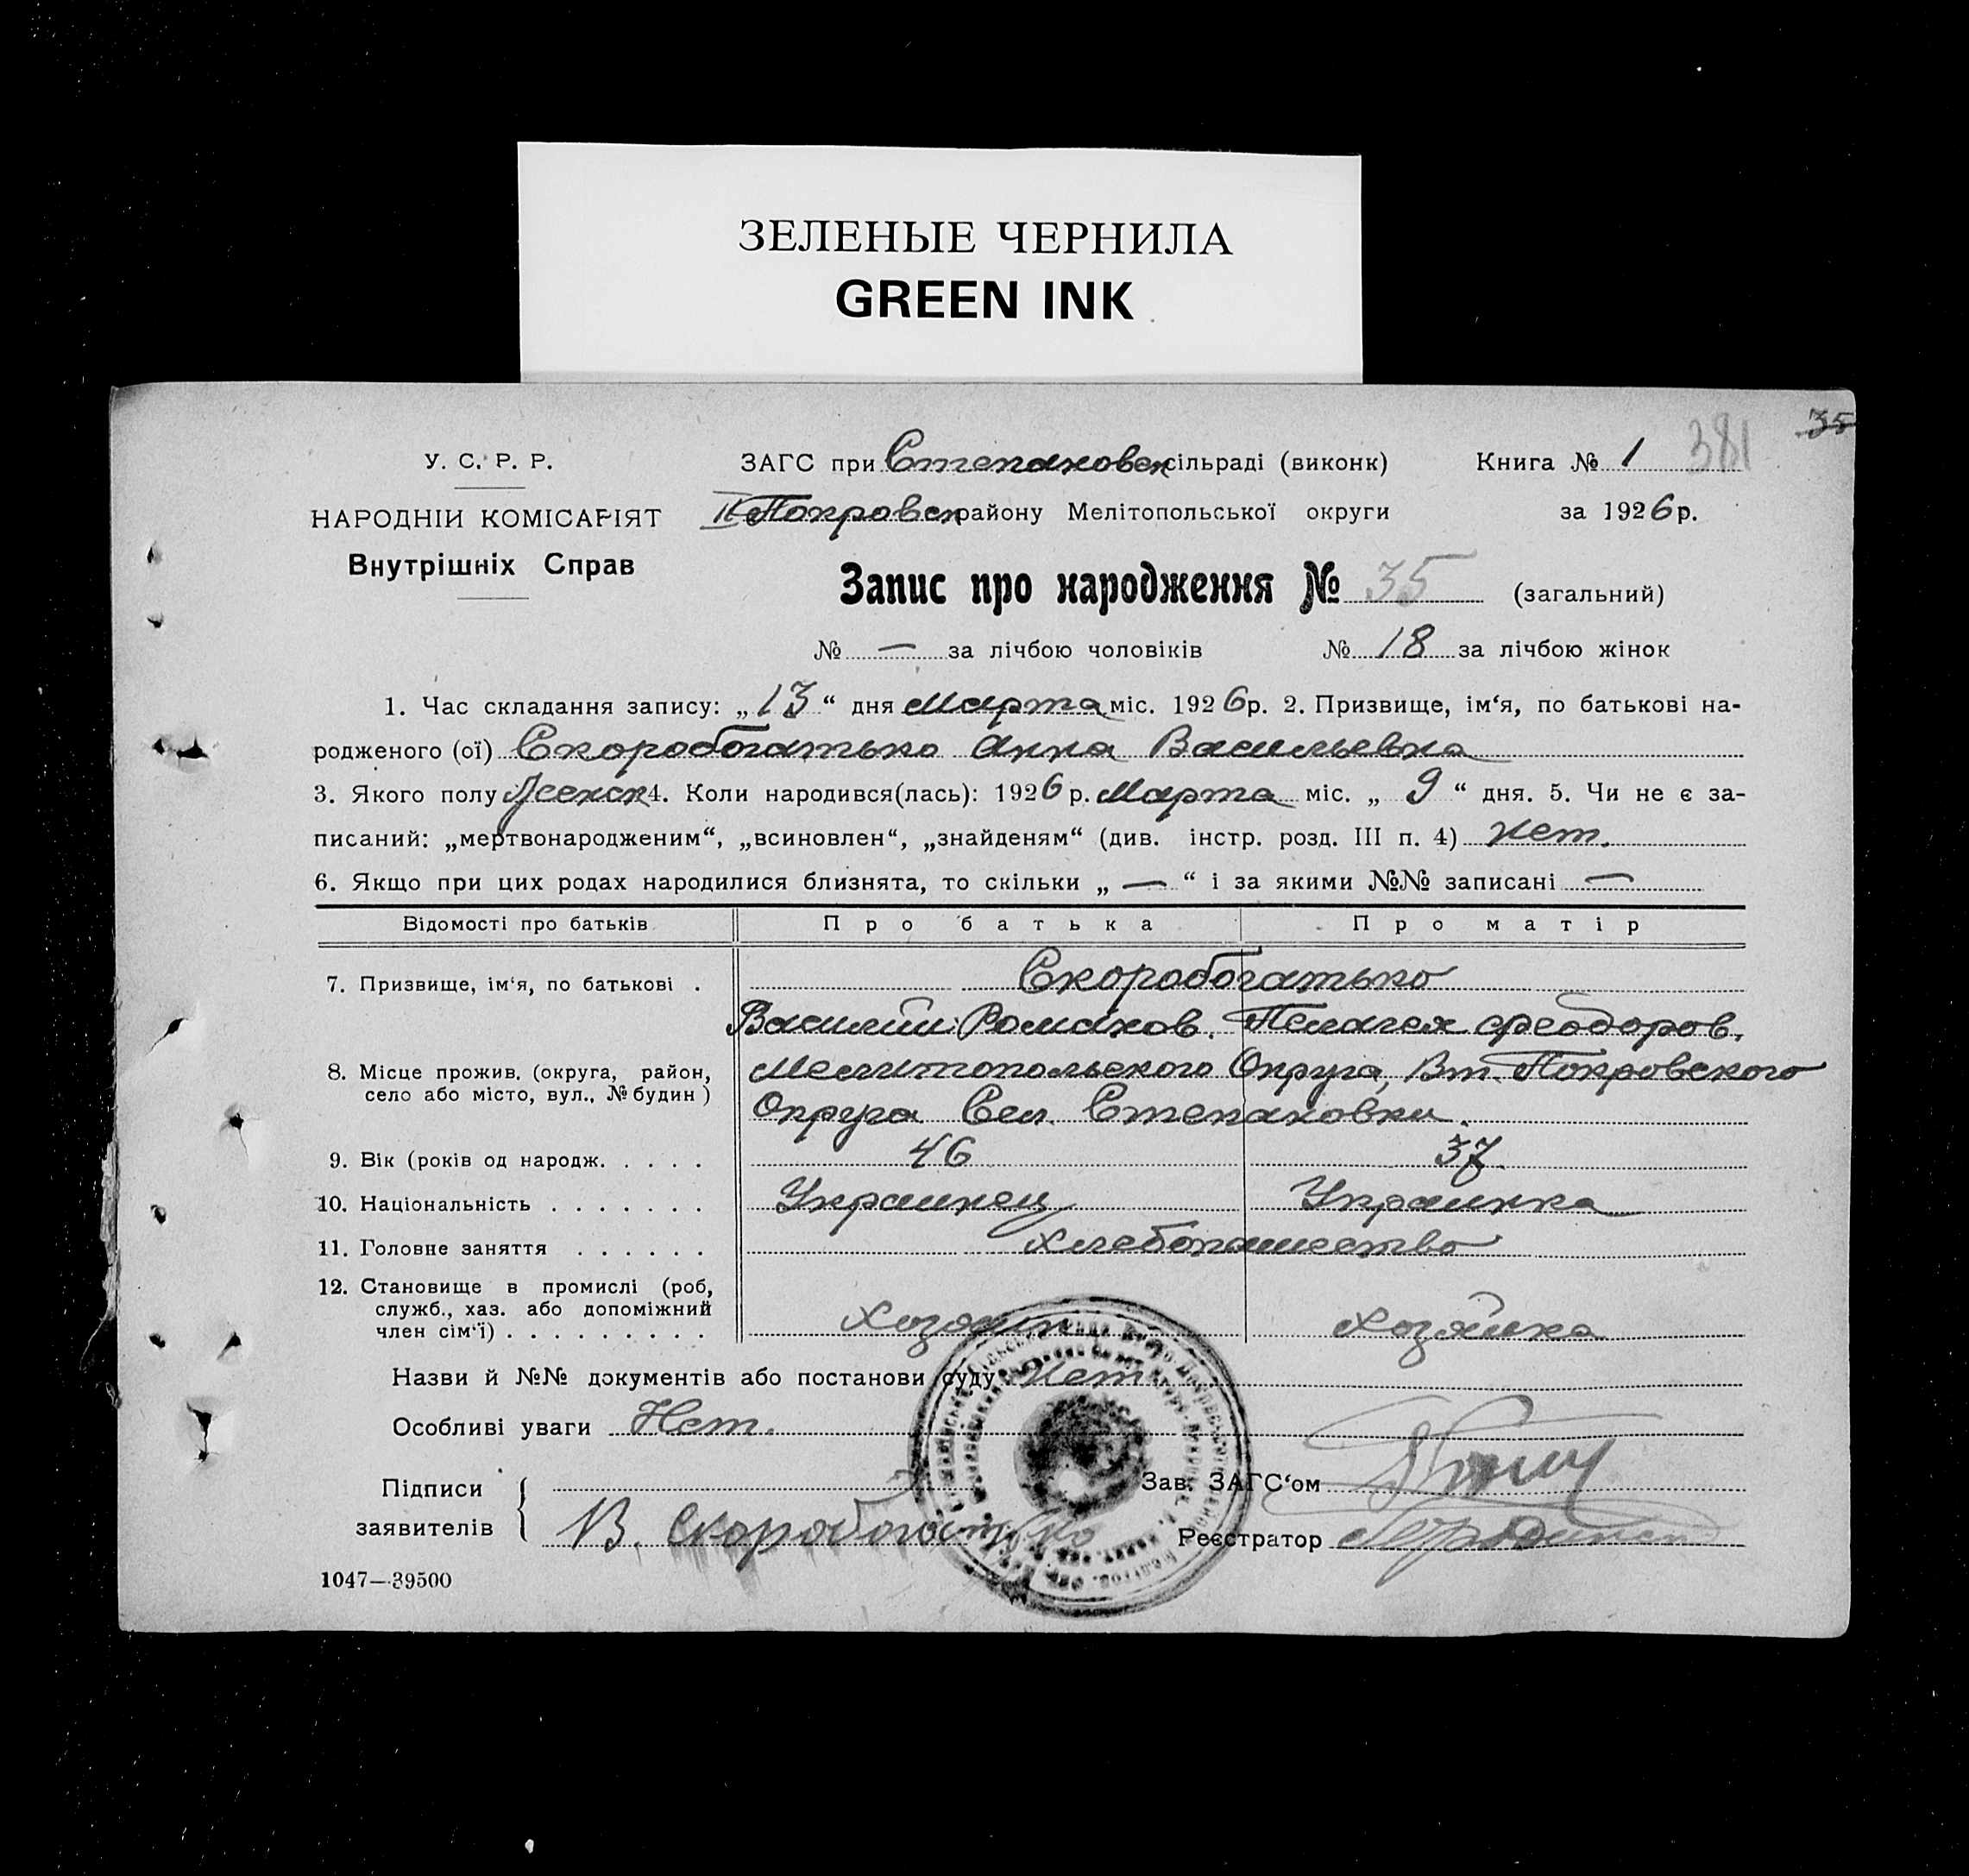 ЗЕЛЕНЫЕ ЧЕРНИЛА
GREEN INK
35
381
У. С. Р. Р.
ЗАГС при Степановск сільраді (виконк)
Книга № 1
НАРОДНІИ КОМІСАРІЯТ
II Покровск району Мелітопольської округи
за 1926 р.
Внутрішніх Справ
Запис про народження № 35 (загальний)
№ — за лічбою чоловіків № 18 за лічбою жінок
1. Час складання запису: „13“ дня Марта міс. 1926 р. 2. Призвище, ім‘я, по батькові на-
родженого (ої) Скоробогатько Анна Васильевна
3. Якого полу Женск 4. Коли народився(лась): 1926 р. Марта міс. „ 9 “ дня. 5. Чи не є за-
писаний: „мертвонародженим“, „всиновлен“, „знайденям“ (див. інстр. розд. III п. 4) нет.
6. Якщо при цих родах народилися близнята, то скільки „ — “ і за якими №№ записані —
Відомості про батьків
Про батька
Про матір
7. Призвище, ім‘я, по батькові .
Скоробогатько
Василий Романов. Пелагея Феодоров.
8. Місце прожив. (округа, район,
село або місто, вул., № будин )
Мелитопольского Округа, Вт. Покровского
Округа Сел. Степановки.
9. Вік (років од народж. . . . .
46
37
10. Національність . . . . . . .
Украинец
Украинка
11. Головне заняття . . . . . .
Хлебопашество
12. Становище в промислі (роб,
служб., хаз. або допоміжний
член сім‘ї) . . . . . . . . .
Хозяин
Хозяйка
Назви й №№ документів або постанови суду Нет
Особливі уваги Нет.
Підписи
заявителів
В. Скоробогатько
Зав. ЗАГС‘ом
Реєстратор
1047—39500